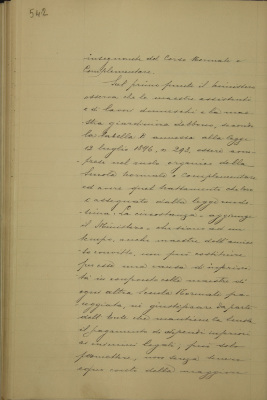 542
insegnante del Corso Normale e
Complementare.
Sul primo punto il Ministero
osserva che le maestre assistenti
e di lavori donneschi e la mae-
stra giardiniera debbono, a senso
la tabella D annessa alla legge
12 luglio 1896, n. 293, essere com-
prese nel ruolo organico della
Scuola normale e complementare
ed avere quel trattamento che loro
è assegnato dalla legge mede-
sima. La circostanza, aggiunge
il Ministero, che siano ad un
tempo, anche maestre dell'annes-
so convitto, non può costituire
per esse una causa d'inferiori-
tà in confronto delle maestre di
ogni altra Scuola Normale pa-
reggiata, nè giustificare da parte
dell'Ente che mantiene la Scuola
il pagamento di stipendi inferiori
ai minimi legali, può solo
permettere, una tenue
sopra conto della maggior